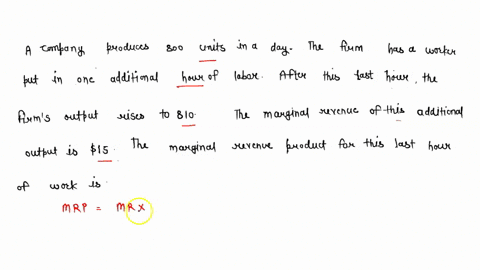 A company produces 800 units in a day. The firm has a worker
put in one additional hour of labor. After this last hour, the
firm's output rises to 810. The marginal revenue of this additional
output is $15. The marginal revenue product for this last hour
of work is.
MRP = MR X